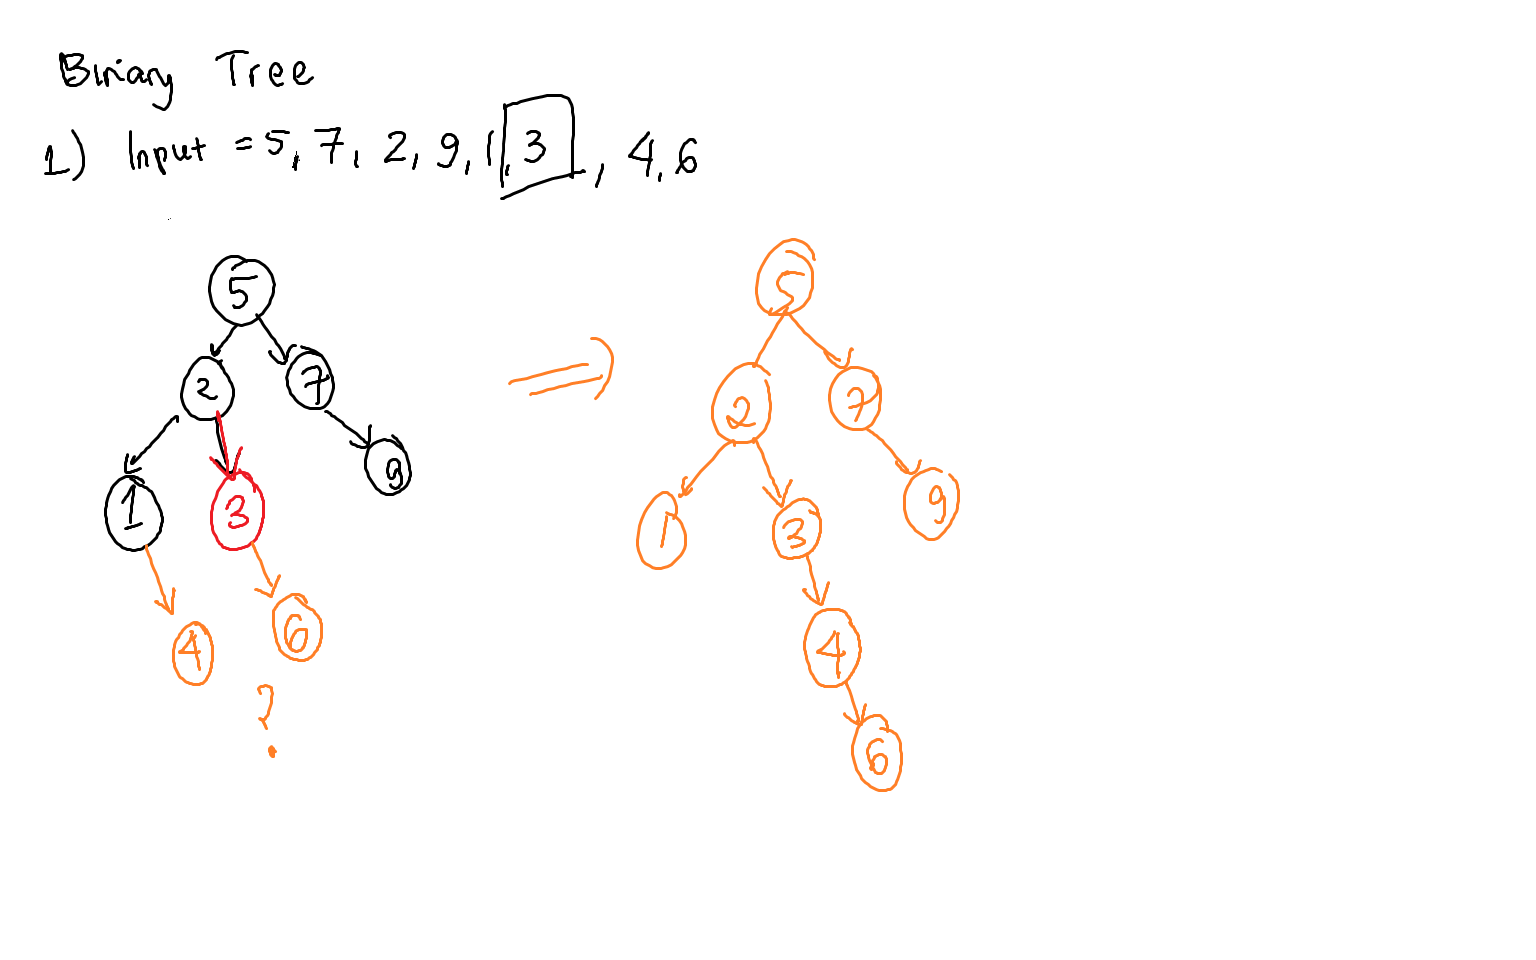 Binary Tree
1) Input = 5, 7, 2, 9, 1, 3, 4, 6
5
2 7
1 3 9
4 6
?
5
2 7
1 3 9
4
6